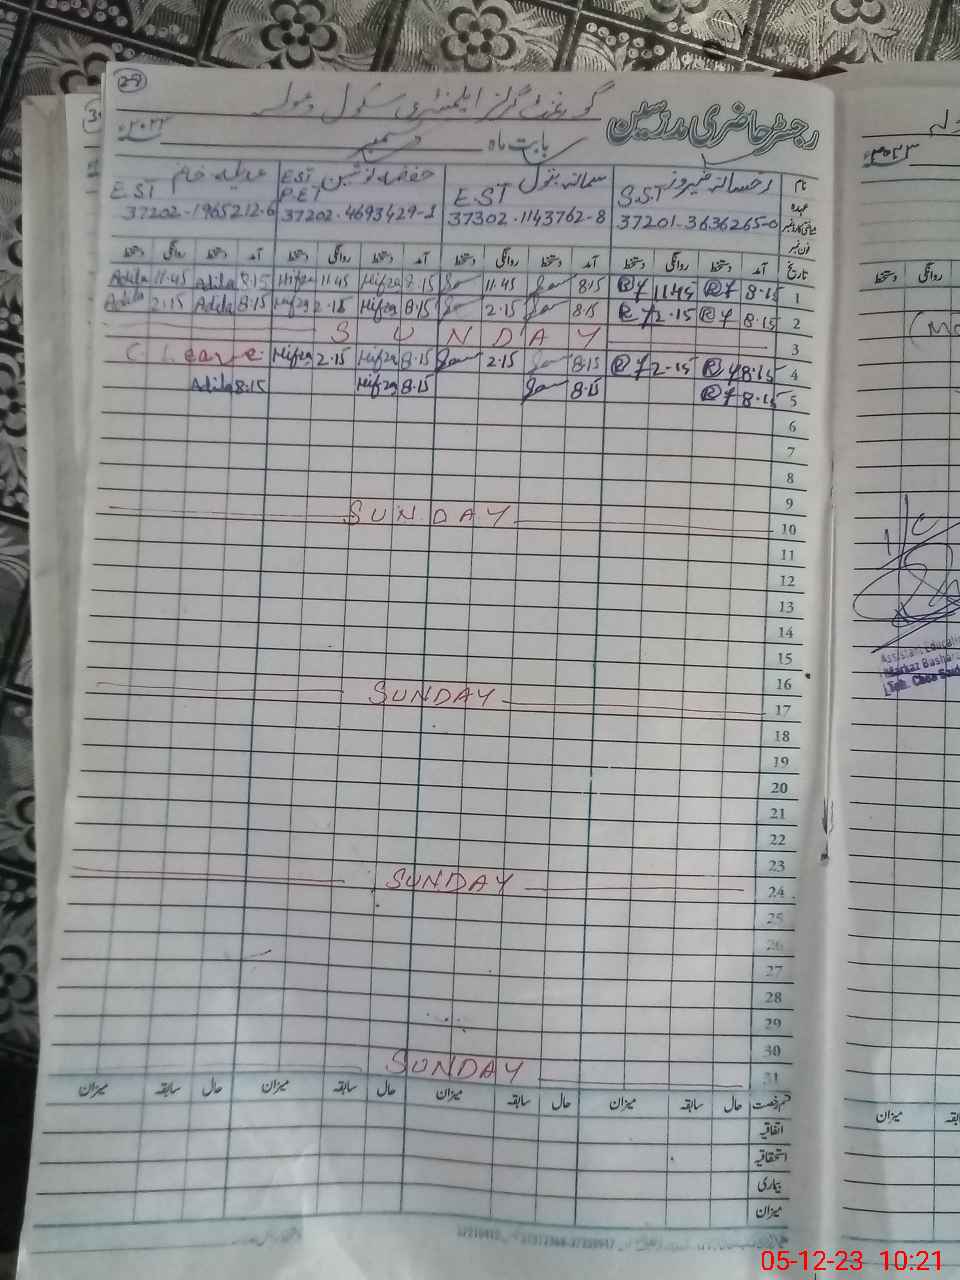 29
رجسٹر حاضری مدرسین
گورنمنٹ گرلز ایلیمنٹری سکول
بابت ماہ دسمبر ۲۰۲۳ء
نام رخسانہ فیروز سمانہ بتول حفصہ نوشین عدیلہ خانم
عہدہ S.S.T E.ST EST P.ET E.ST
37201-3636265-0 37302-1143762-8 37202-4693429-2 37202-1965212-6
فون نمبر
تاریخ آمد دستخط روانگی دستخط آمد دستخط روانگی دستخط آمد دستخط روانگی دستخط آمد دستخط روانگی دستخط
Adila 11.45 Adila 8.15 Hifza 11.45 Hifza 8.15 11.45 8.15 11.45 8.15 1
Adila 2.15 Adila 8.15 Hifza 2.15 Hifza 8.15 2.15 8.15 2.15 8.15 2
SUNDAY 3
C. Leave Hifza 2.15 Hifza 8.15 2.15 8.15 2.15 8.15 4
Adila 8.15 Hifza 8.15 8.15 8.15 5
6
7
8
9
SUNDAY 10
11
12
13
14
15
16
SUNDAY 17
18
19
20
21
22
23
SUNDAY 24
25
26
27
28
29
30
SUNDAY 31
قسم رخصت حال سابقہ میزان حال سابقہ میزان حال سابقہ میزان حال سابقہ میزان
اتفاقیہ
استحقاقیہ
بیماری
میزان
۲۰۲۳ء
دستخط روانگی دستخط
Assistant Educati
Markaz Bashar
Teh. Choa Said
میزان سابقہ
05-12-23 10:21